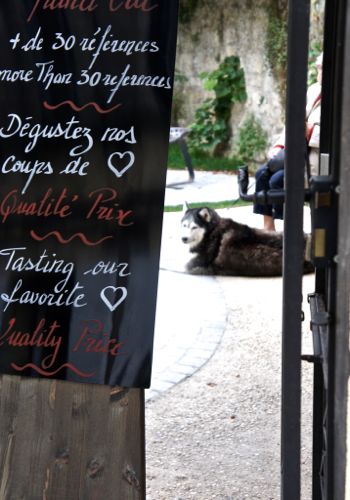 + de 30 références
more Than 30 references
Dégustez nos
coups de ♡
Qualité Prix
Tasting our
favorite ♡
Quality Price